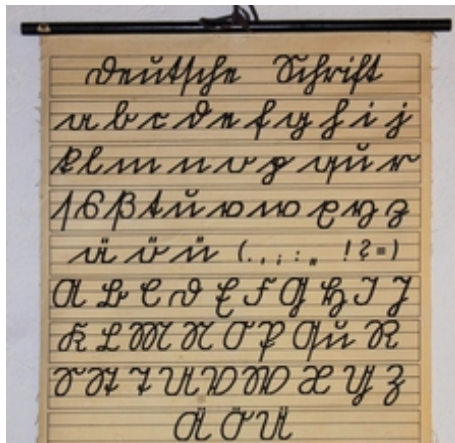 Deutsche Schrift
a b c d e f g h i j
k l m n o p qu r
ſ s ß t u v w x y z
ä ö ü (., ; : „ ! ? =)
A B C D E F G H I J
K L M N O P Qu R
S St T U V W X Y Z
Ä Ö Ü